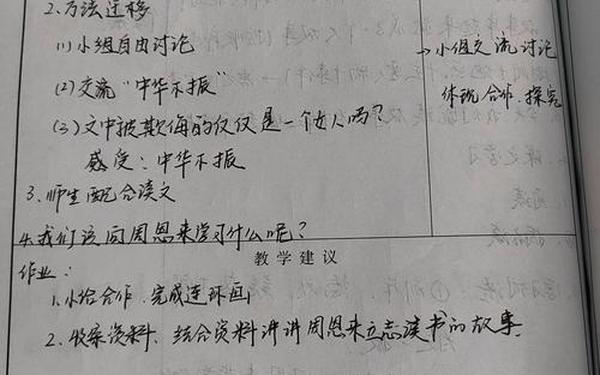 2.方法迁移
(1)小组自由讨论
(2)交流“中华不振”
(3)文中被欺侮的仅仅是一个女人吗?
感受:中华不振
→小组交流讨论
体现合作、探究
3.师生配合读文
4.我们该向周恩来学习什么呢?
教学建议
作业:
1.小组合作.完成连环画
2.收集资料、结合资料讲讲周恩来立志读书的故事.